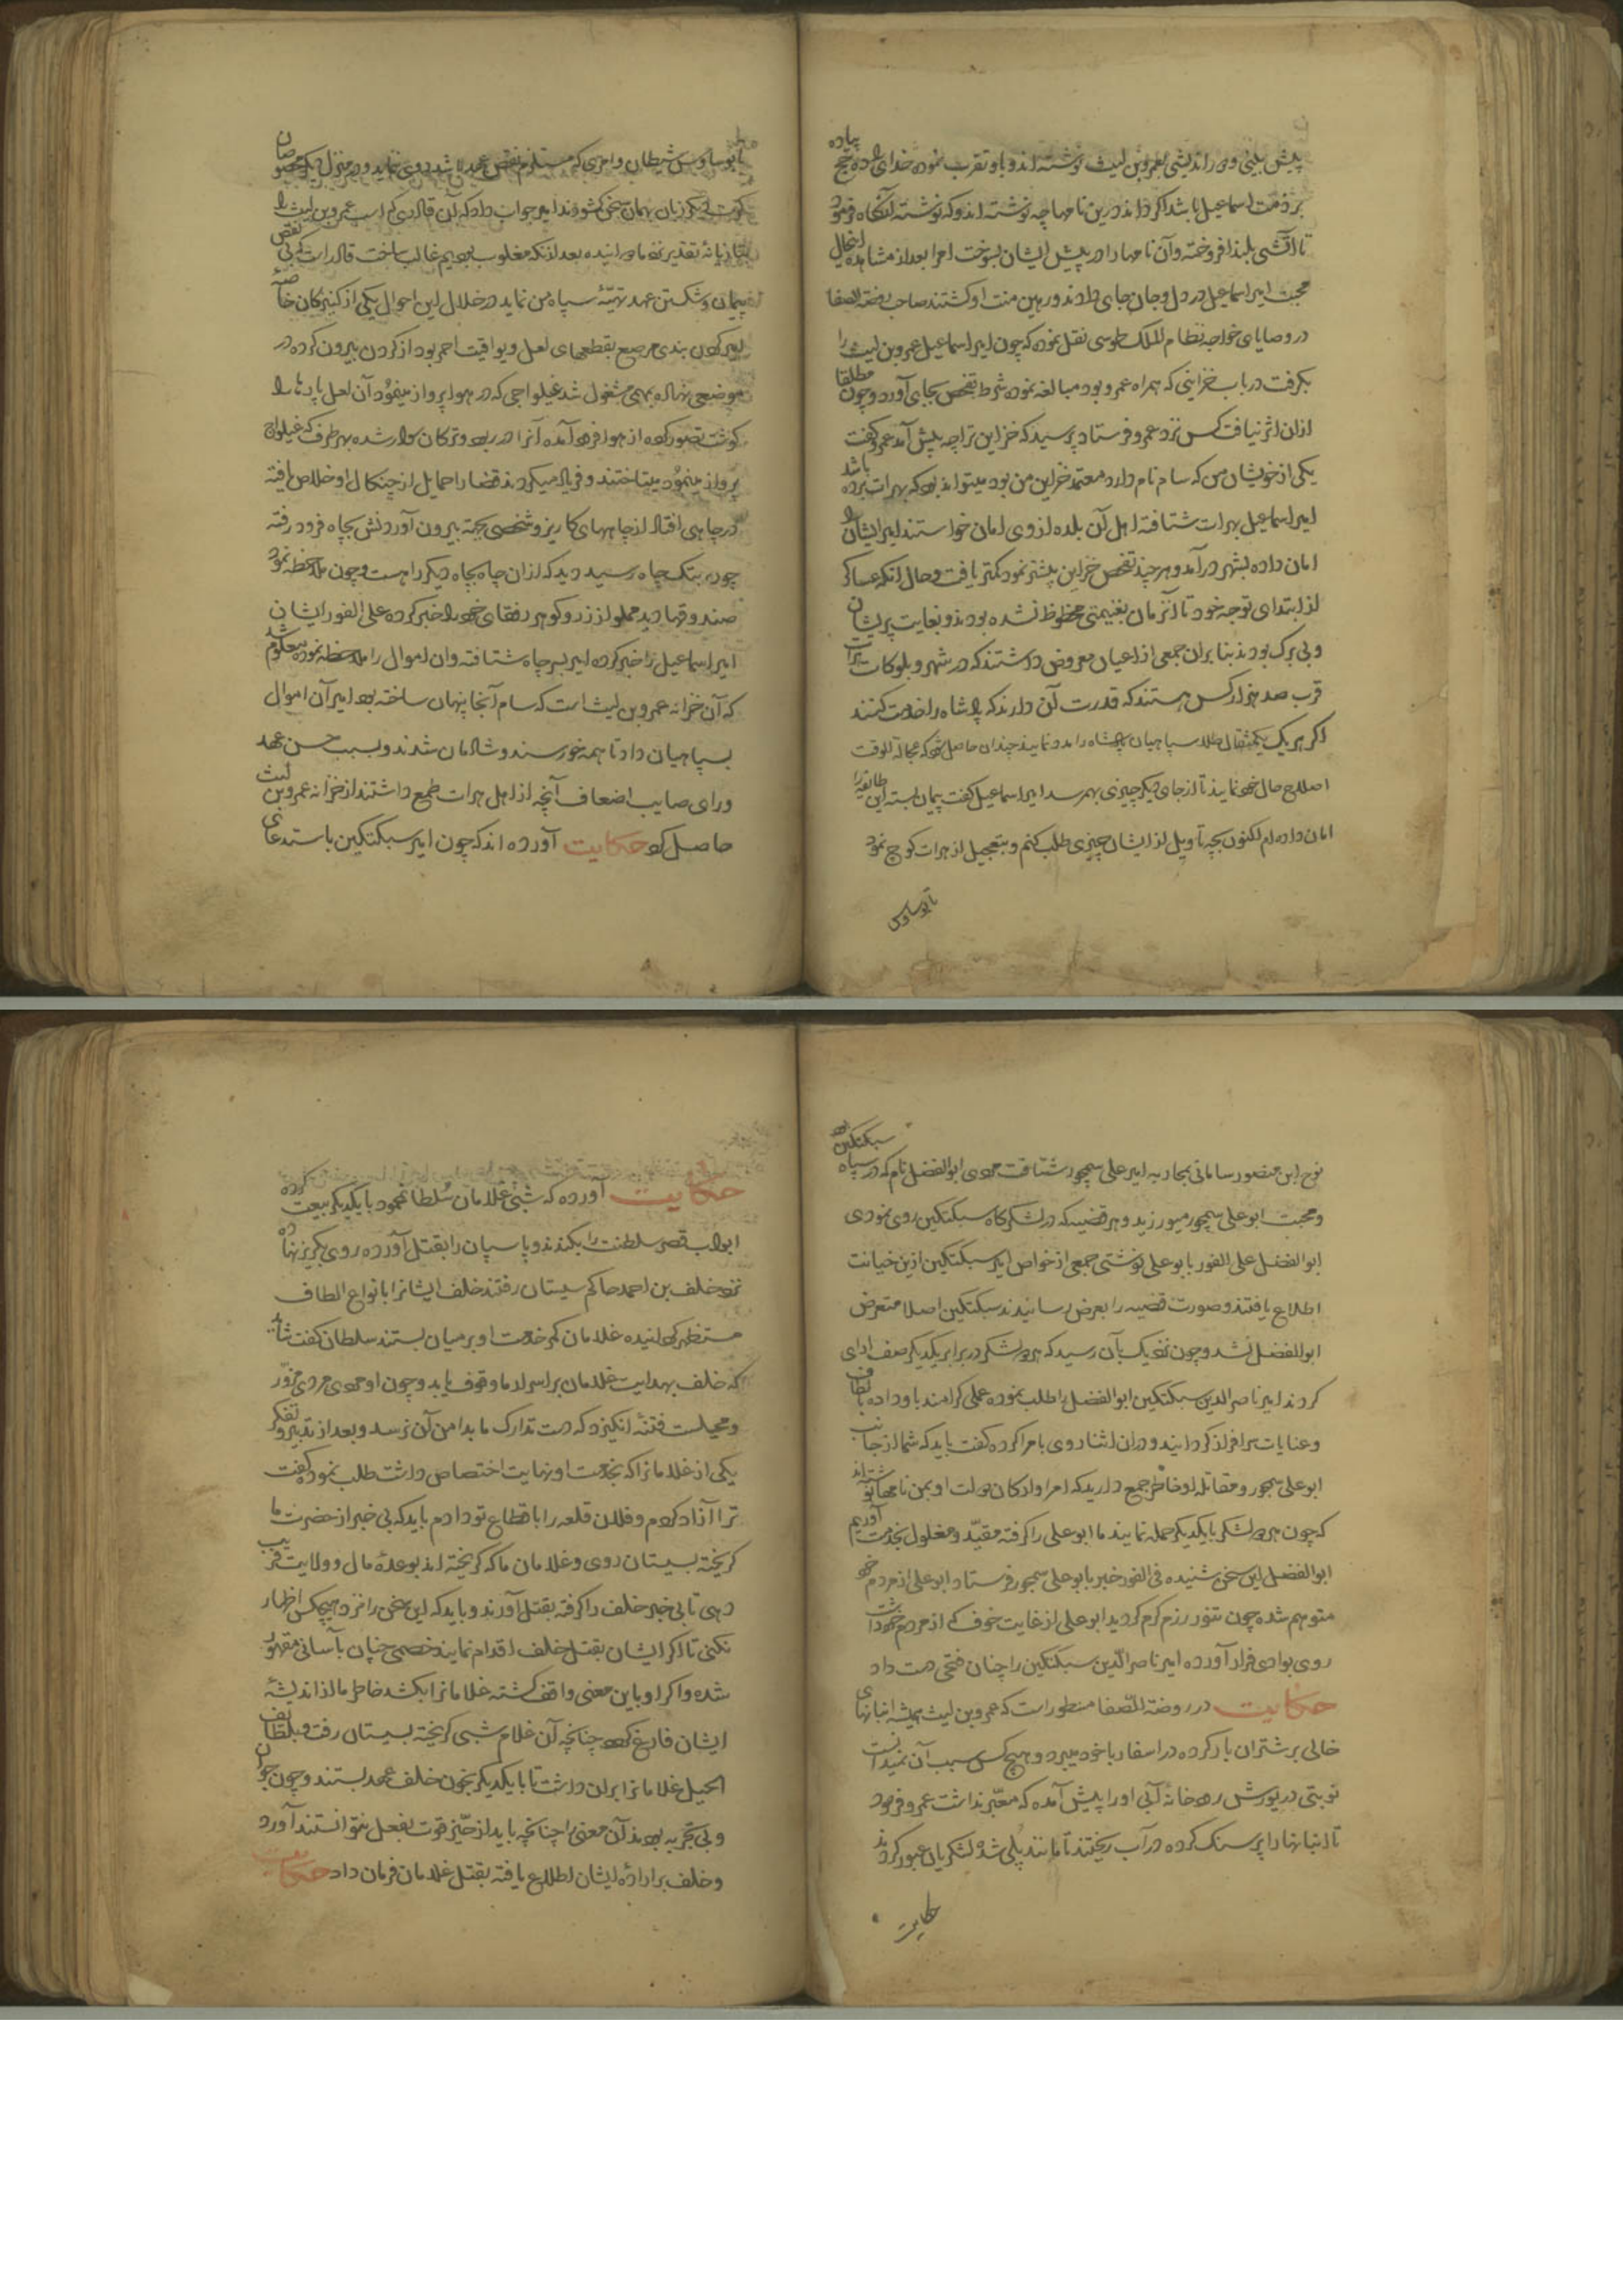 پیش بینی و دور اندیشی بعمروبن لیث نوشته اند و باو تقرب نموده خدای را ده حج پیاده
بر ذمت اسماعیل باشد اکر داند درین نامها چه نوشته اند و که نوشته آنکاه فرمود
تا آتشی بلند افروخته و آن نامها را در پیش ایشان بسوخت امرا بعد از مشاهده اینحال
محبت امیر اسماعیل در دل و جان جای دادند و رهین منت او کشتند صاحب روضة الصفا
در وصایای خواجه نظام الملک طوسی نقل نموده که چون امیر اسماعیل عمروبن لیث را
بکرفت در باب خزاینی که همراه عمرو بود مبالغه نموده شرط تفحص بجای آورد و چون مطلقا
ازان اثر نیافت کس نزد عمرو فرستاد پرسید که خزاین ترا چه پیش آمد عمرو کفت
یکی از خویشان من که سام نام دارد معتمد خزاین من بود میتواند بود که بهرات برده باشد
امیر اسماعیل بهرات شتافته اهل آن بلده از وی امان خواستند امیر ایشان را
امان داده بشهر در آمد و هرچند تفحص خزاین بیشتر نمود کمتر یافت و حال آنکه عساکر
از ابتدای توجه خود تا آنزمان بغنیمتی محظوظ نشده بودند و بغایت پریشان
و بی برک بودند بنابران جمعی از اعیان معروض داشتند که در شهر و بلوکات هرات
قرب صد هزار کس هستند که قدرت آن دارند که پادشاه را خدمت کنند
اکر هر یک یکمثقال طلا سپاهیان پادشاه را مدد نمایند چندان حاصل شود که عجالة الوقت
اصلاح حال خود نمایند تا از جای دیکر چیزی بهم رسد امیر اسماعیل کفت پیمان بسته این طایفه را
امان داده ام اکنون بچه تاویل از ایشان چیزی طلب کنم و بتعجیل از هرات کوچ نمود
تا بوساوس
تا بوساوس شیطان و امری که مستلزم نقض عهد باشد روی ننماید و در منزل دیکر مخصوصان
کرت دیکر زبان بهمان سخن کشودند امیر جواب داد که آن قادری که اسب عمروبن لیث را
بتازیانه تقدیر نزد ما دوانیده بعد ازنکه مغلوب بودیم غالب ساخت قادر است که بی نقض
پیمان و شکستن عهد تهیئه سپاه من نماید در خلال این احوال یکی از کنیزکان خاصه
امیر کردن بندی مرصع بقطعهای لعل و یواقیت احمر بود از کردن بیرون کرده در
موضعی نهاده بهمی مشغول شد غیلواجی که در هوا پرواز مینمود آن لعل پارها را
کوشت تصور کرده از هوا فرود آمده آنرا در ربود و ترکان سوار شده بهر طرف که غیلواج
پرواز مینمود میتاختند و فریاد میکردند قضا را حمایل از چنکال او خلاص یافته
در چاهی افتاد از چاههای کاریز و شخصی جهة بیرون آوردنش بچاه فرود رفته
چون بتک چاه رسید دید که ازان چاه بچاه دیکر راهست و چون ملاحظه نمود
صندوقها دید مملو از زر و کوهر رفقای خود را خبر کرده علی الفور ایشان
امیر اسماعیل را خبر کرده امیر بسر چاه شتافته وان اموال را ملاحظه نموده معلوم شد
که آن خزانه عمروبن لیث است که سام آنجا پنهان ساخته بود امیر آن اموال
بسپاهیان داد تا همه خورسند و شادمان شدند و بسبب حسن عهد
ورای صایب اضعاف آنچه از اهل هرات طمع داشتند از خزانه عمروبن لیث
حاصل کرد حکایت آورده اند که چون امیر سبکتکین باستدعای
نوح ابن منصور سامانی بمحاربه امیر علی سیمجور شتافت مردی ابوالفضل نام که در سپاه سبکتکین بود
و محبت ابوعلی سیمجور میورزید و هر قضیه که در لشکرکاه سبکتکین روی نمودی
ابوالفضل علی الفور بابوعلی نوشتی جمعی از خواص امیر سبکتکین ازین خیانت
اطلاع یافتند و صورت قضیه را بعرض رسانیدند سبکتکین اصلا متعرض
ابوالفضل نشد و چون نزدیک بآن رسید که هر دو لشکر در برابر یکدیکر صف ارای
کردند امیر ناصرالدین سبکتکین ابوالفضل را طلب نموده عملی کرامند باو داده بالطاف
و عنایات سرافراز کردانید و دران اثنا روی بامرا کرده کفت باید که شما از جانب
ابوعلی سیمجور و مقاتله او خاطر جمع دارید که امرا و ارکان دولت او بمن نامها نوشته اند
که چون هر دو لشکر بایکدیکر حمله نمایند ما ابوعلی را کرفته مقید و مغلول بخدمت آوریم
ابوالفضل این سخن شنیده فی الفور خبر بابوعلی سیمجور فرستاد ابوعلی از مردم خود
متوهم شده چون تنور رزم کرم کردید ابوعلی از غایت خوف که از مردم خود داشت
روی بوادی فرار آورده امیر ناصرالدین سبکتکین را چنان فتحی دست داد
حکایت در روضة الصفا منطور است که عمروبن لیث همیشه انبانهای
خالی بر شتران بار کرده در اسفار با خود میبرد و هیچکس سبب آن نمیدانست
نوبتی در یورش رودخانه آبی او را پیش آمده که معبر نداشت عمرو فرمود
تا انبانها را پر سنک کرده در آب ریختند تا مانند پلی شد و لشکریان عبور کردند
حکایت
حکایت آورده که شبی غلامان سلطان محمود بایکدیکر بیعت کرده
ابواب قصر سلطنت را بکندند و پاسبان را بقتل آورده روی بکریز نهاده
نزد خلف بن احمد حاکم سیستان رفتند خلف ایشانرا بانواع الطاف
مستظهر کردانیده غلامان کمر خدمت او بر میان بستند سلطان کفت شاید
که خلف بهدایت غلامان بر اسرار ما وقوف یابد و چون او مردی مزور
و محیلست فتنه انکیزد که دست تدارک ما بدامن آن نرسد و بعد از تدبیر و تفکر
یکی از غلامانرا که بخدمت او نهایت اختصاص داشت طلب نمود کفت
ترا آزاد کردم و فلان قلعه را باقطاع تو دادم باید که بی خبر از حضرت ما
کریخته بسیستان روی و غلامان ما که کریخته اند بوعدۀ مال و ولایت فریب
دهی تا بی خبر خلف را کرفته بقتل آورند و باید که این سخن را نزد هیچکس اظهار
نکنی تا اکر ایشان بقتل خلف اقدام نمایند خصمی چنان بآسانی مقهور
شده و اکر او باین معنی واقف کشته غلامانرا بکشد خاطر ما از اندیشۀ
ایشان فارغ کردد چنانچه آن غلام شبی کریخته بسیستان رفت و بلطائف
الحیل غلامانرا بران داشت تا بایکدیکر بخون خلف عهد بستند و چون جوان
و بی تجربه بودند آن معنی را چنانچه باید از حیز قوت بفعل نتوانستند آورد
و خلف بر ارادۀ ایشان اطلاع یافته بقتل غلامان فرمان داد حکایت